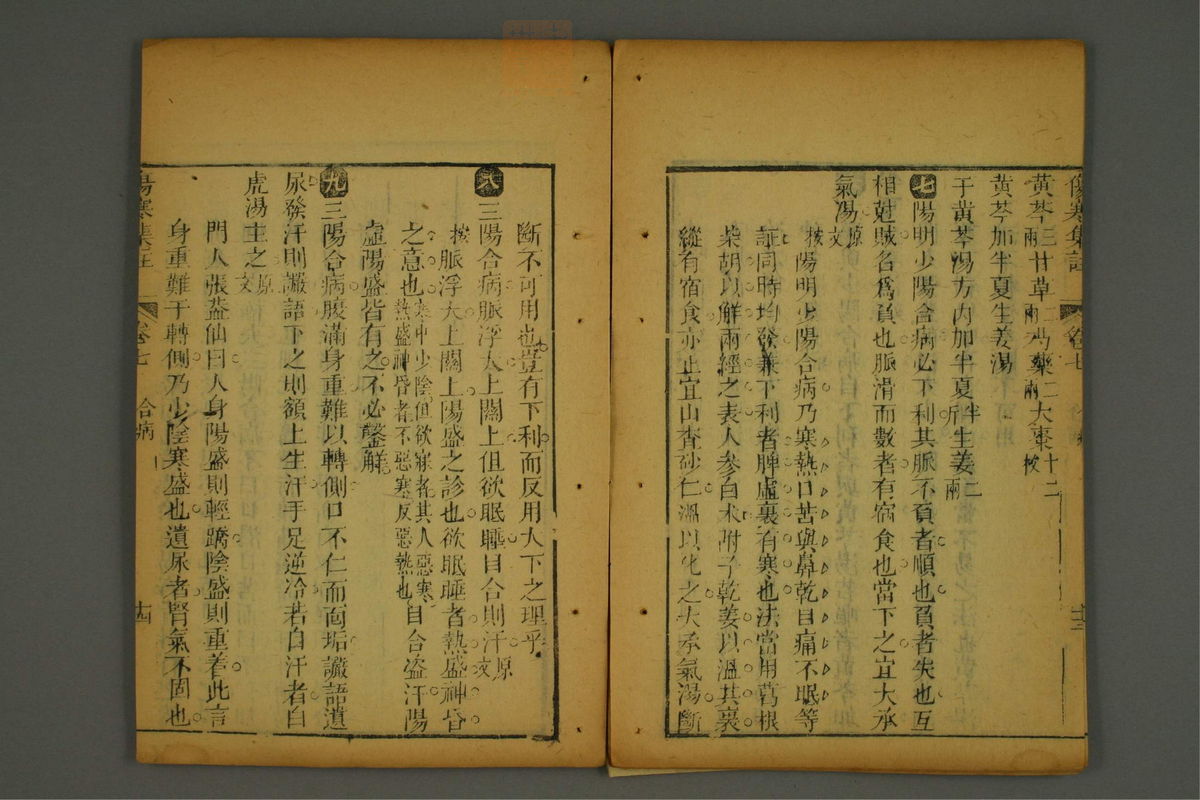 傷寒集註 卷七 十三
黃芩三兩甘草二兩芍藥二兩大棗十二枚
黃芩加半夏生姜湯
于黃芩湯方內加半夏半斤生姜二兩
七陽明少陽合病必下利其脈不負者順也負者失也互
相尅賊名爲負也脈滑而數者有宿食也當下之宜大承
氣湯原文
按陽明少陽合病乃寒熱口苦與鼻乾目痛不眠等
証同時均發兼下利者脾虛裏有寒也法當用葛根
柴胡以解兩經之表人參白术附子乾姜以溫其裏
縱有宿食亦止宜山查砂仁溫以化之大承氣湯斷
斷不可用也豈有下利而反用大下之理乎
八三陽合病脈浮大上關上但欲眠睡目合則汗原文
按脈浮大上關上陽盛之診也欲眠睡者熱盛神昏
之意也寒中少陰但欲寐者其人惡寒熱盛神昏者不惡寒反惡熱也目合盗汗陽
虛陽盛皆有之不必鑿解
九三陽合病腹滿身重難以轉側口不仁而面垢讝語遺
尿發汗則讝語下之則額上生汗手足逆冷若自汗者白
虎湯主之原文
門人張蓋仙曰人身陽盛則輕蹻陰盛則重着此言
身重難于轉側乃少陰寒盛也遺尿者腎氣不固也
傷寒集註 卷七 合病 十四